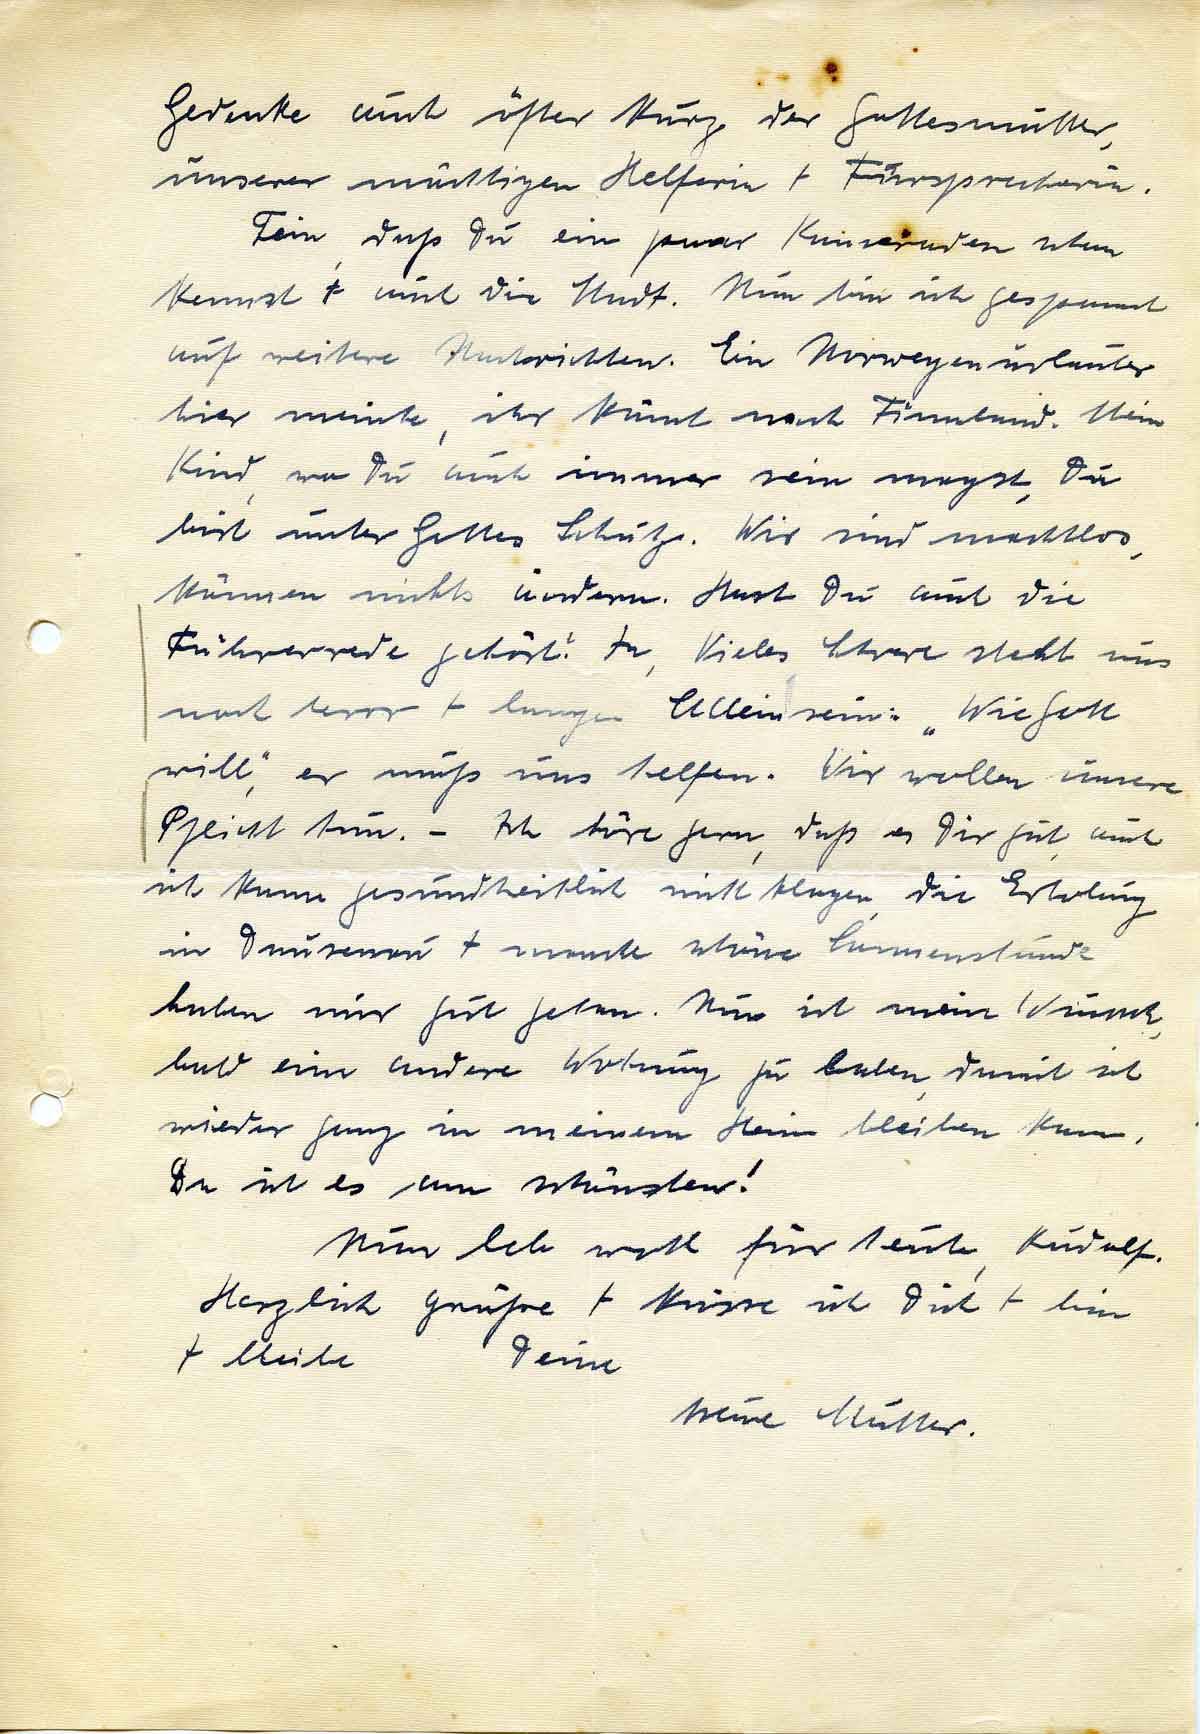 Gedenke auch öfter kurz der Gottesmutter,
unserer mächtigen Helferin + Fürsprecherin.
Fein, daß Du ein paar Kameraden schon
kennst + auch die Stadt. Nun bin ich gespannt
auf weitere Nachrichten. Ein Norwegenurlauber
hier meinte, ihr kämt nach Finnland. Mein
Kind, wo Du auch immer sein magst, Du
bist unter Gottes Schutz. Wir sind machtlos,
können nichts ändern. Hast Du auch die
Führerrede gehört? Ja, Vieles, Schwere steht uns
noch bevor + langes Alleinsein. „Wie Gott
will,“ er muß uns helfen. Wir wollen unsere
Pflicht tun. – Ich höre gern, daß es Dir gut, auch
ich kann gesundheitlich nicht klagen, die Erholung
in Dausenau + manche schöne Sonnenstunde
haben mir gut getan. Nun ist mein Wunsch,
bald eine andere Wohnung zu haben, damit ich
wieder ganz in meinem Heim bleiben kann.
Da ist es am schönsten!
Nun leb wohl für heute, Rudolf.
Herzlich grüße + küsse ich Dich + bin
+ bleibe Deine
treue Mutter.